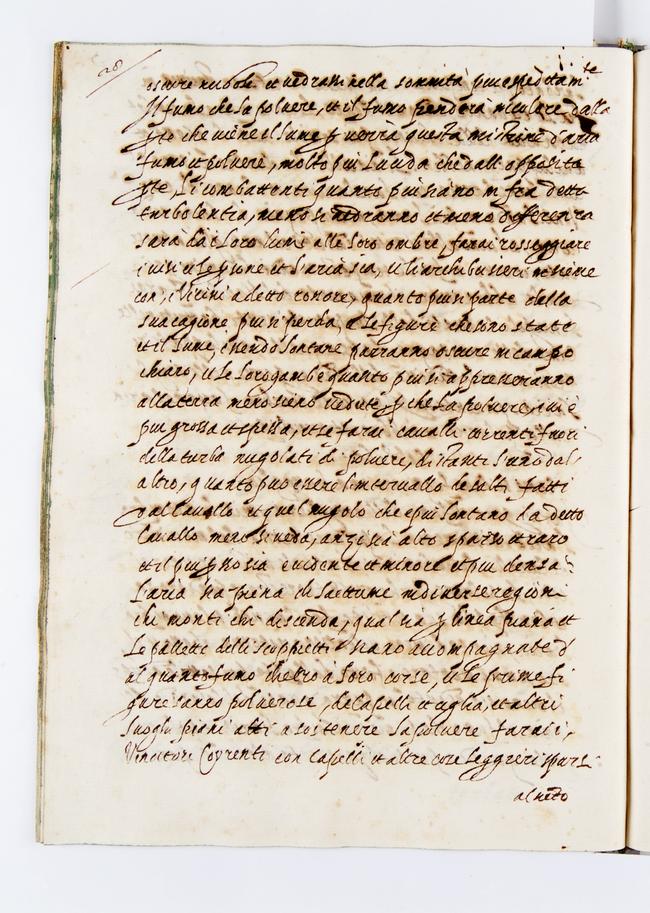 28
oscure nubole et vedrassi nella sommità piu espeditam.te
Il fumo che la polvere, et il fumo penderà in culore dalla
pte che viene il lume p verrà questa mistione d'aria
fumo et polvere, molto piu lucida che dall opposita
pte, Li combattenti quanto piu siano in fra detta
turbolentia, meno si vedranno et meno differenza
sarà dai loro lumi alle loro ombre, farai rosseggiare
i visi e le psone et l'aria sia, e li archibusieri insieme
con, i vicini a detto romore, quanto piu si parte dalla
sua cagione piu si perda, e le figure che sono
et il lume, essendo lontane parranno oscure in campo
chiaro, e le loro gambe quanto piu si appresseranno
alla terra meno sieno vedute p che la polvere, ivi è
piu grossa et spessa, et se farai cavalli correnti fuori
della turba nugolati di polvere, distanti l'uno dal
altro, quanto puo essere l'intervallo de salti fatti
dal cavallo et quel nugolo che piu lontano da detto
cavallo meno si veda, anzi sia alto sparso et raro
et il piu psso sia evidente et minore et piu densa
L'aria sia piena di saettume in diverse regioni
chi monti chi discenda, qual sia p linea piana et
Le pallette delli scoppietti siano accompagnate d'
al quanto fumo dietro à loro corse, e le prime fi
gure sanno polverose, de capelli et ciglia, et altri
luoghi piani atti a sostenere la polvere farai i,
Vincitori Correnti con capelli et altre cose leggieri sparsi
al vento